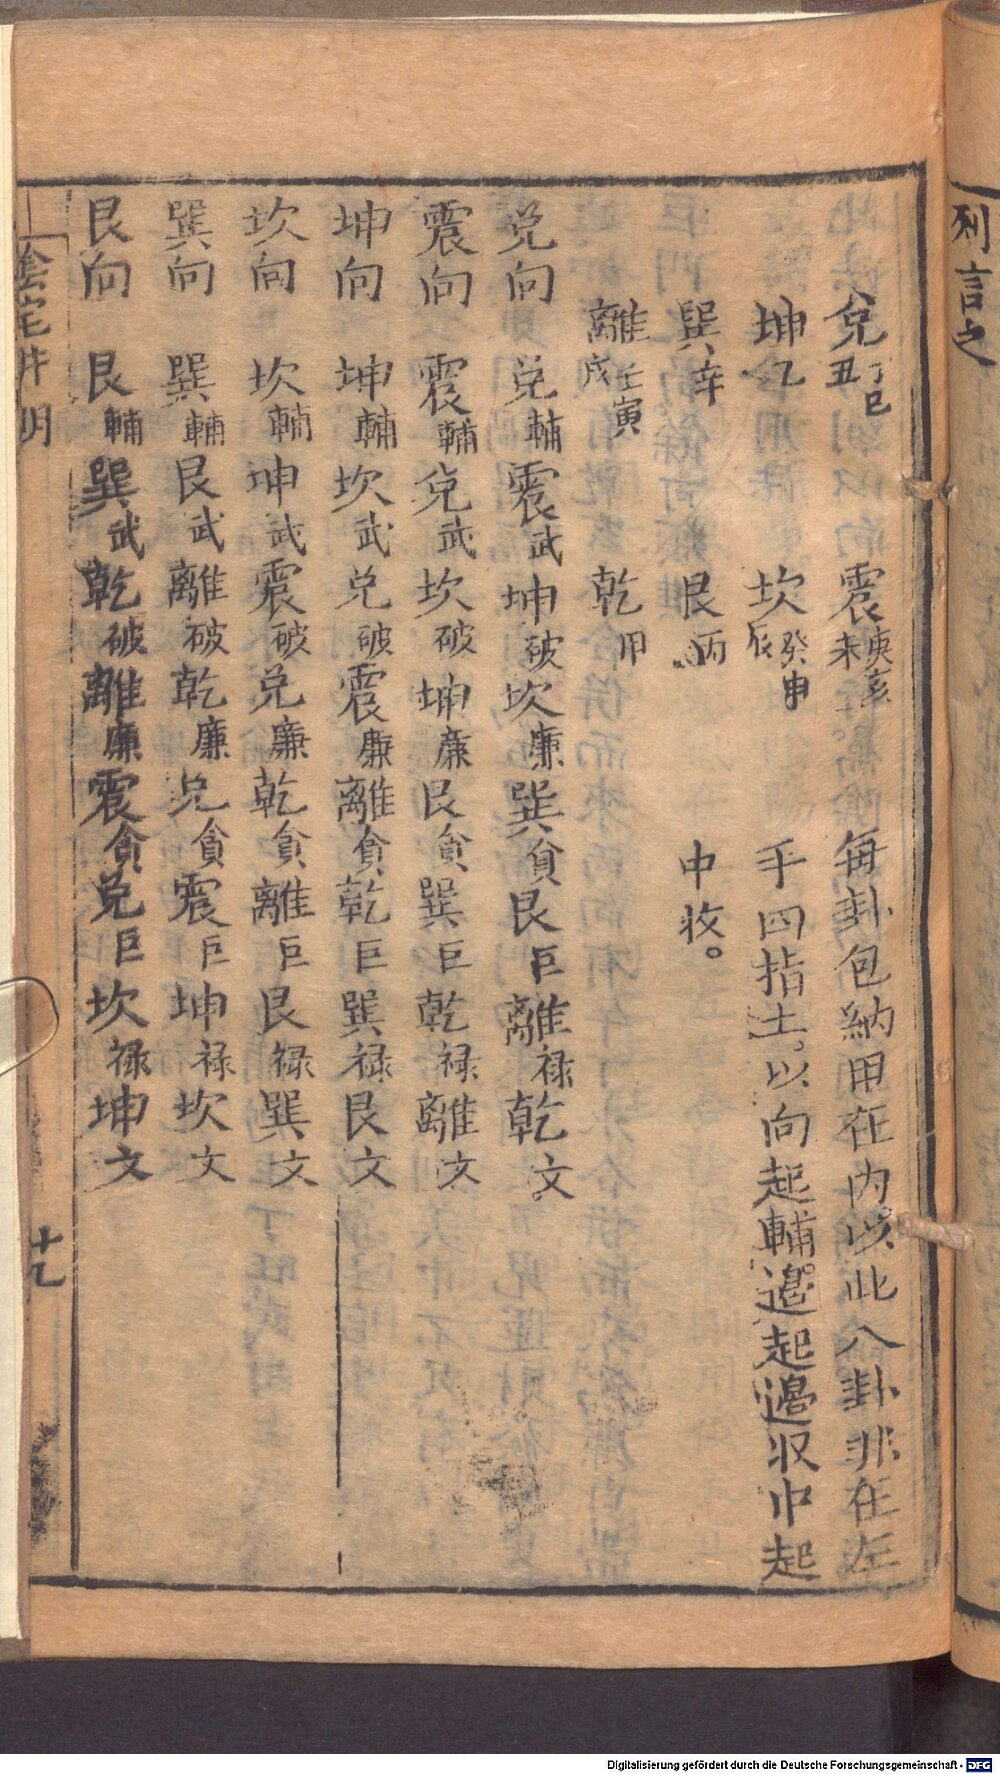 兌丁巳丑　震庚亥未　每卦包納用在內。以此八卦非在左
坤乙　坎癸申辰　手四指土。以向起輔。邉起邉収中起
巽辛　艮丙　中收。
離壬寅戌　乾甲
兌向　兌輔震武坤破坎廉巽貪艮巨離禄乾文
震向　震輔兌武坎破坤廉艮貪巽巨乾禄離文
坤向　坤輔坎武兌破震廉離貪乾巨巽禄艮文
坎向　坎輔坤武震破兌廉乾貪離巨艮禄巽文
巽向　巽輔艮武離破乾廉兌貪震巨坤禄坎文
艮向　艮輔巽武乾破離廉震貪兌巨坎禄坤文
陰宅井明　廿九
列言之
Digitalisierung gefördert durch die Deutsche Forschungsgemeinschaft - DFG